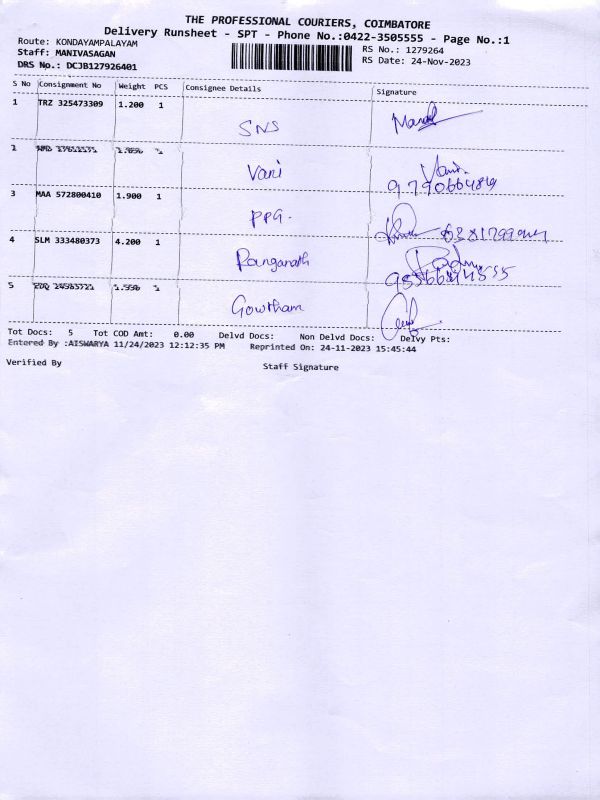 THE PROFESSIONAL COURIERS, COIMBATORE
Delivery Runsheet - SPT - Phone No.:0422-3505555 - Page No.:1
Route: KONDAYAMPALAYAM
RS No.: 1279264
Staff: MANIVASAGAN
RS Date: 24-Nov-2023
DRS No.: DCJB127926401
S No Consignment No Weight PCS Consignee Details Signature
1 TRZ 325473309 1.200 1
SNS
2
Vani
Vani
3 MAA 572800410 1.900 1
PPG.
4 SLM 333480373 4.200 1
Ranganath
5
Gowtham
Tot Docs: 5 Tot COD Amt: 0.00 Delvd Docs: Non Delvd Docs: Delvy Pts:
Entered By :AISWARYA 11/24/2023 12:12:35 PM Reprinted On: 24-11-2023 15:45:44
Verified By
Staff Signature